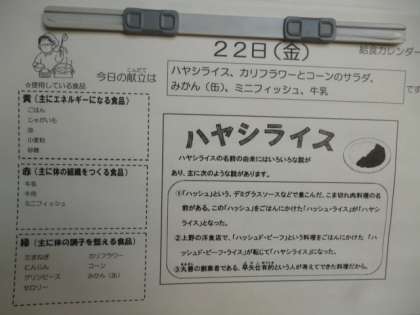 22日(金)
給食カレンダー
こんだて
今日の献立は
☆使用している食品
ハヤシライス、カリフラワーとコーンのサラダ、
みかん(缶)、ミニフィッシュ、牛乳
です
黄(主にエネルギーになる食品)
ごはん
じゃがいも
油
小麦粉
砂糖
赤(主に体の組織をつくる食品)
牛乳
牛肉
ミニフィッシュ
緑(主に体の調子を整える食品)
たまねぎ カリフラワー
にんじん コーン
グリンピース みかん(缶)
セロリー
ハヤシライス
ハヤシライスの名前の由来にはいろいろな説が
あり、主に次のような説があります。
①「ハッシュ」という、デミグラスソースなどで煮こんだ、こま切れ肉料理の名
前がある。この「ハッシュ」をごはんにかけた「ハッシュ・ライス」が「ハヤシ
ライス」となった。
②上野の洋食店で、「ハッシュド・ビーフ」という料理をごはんにかけた 「ハ
ッシュド・ビーフ・ライス」が転じて「ハヤシライス」になった。
③丸善の創業者である、早矢仕有的という人が考えてできた料理だから。